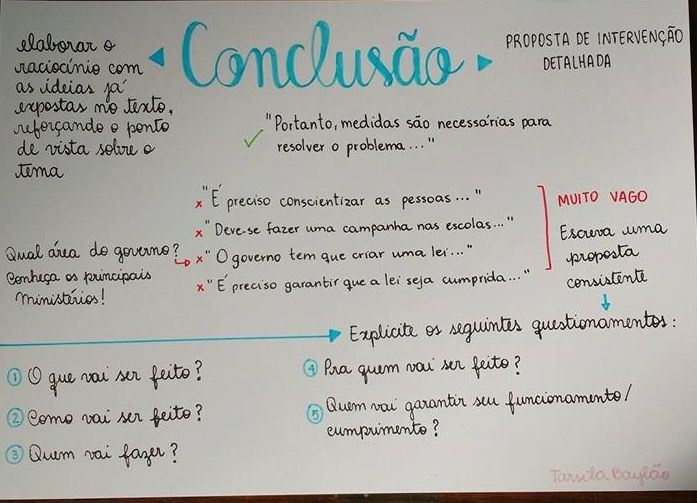 elaborar o
raciocínio com
as ideias já
expostas no texto,
reforçando o ponto
de vista sobre o
tema
Conclusão
PROPOSTA DE INTERVENÇÃO
DETALHADA
"Portanto, medidas são necessárias para
resolver o problema..."
"É preciso conscientizar as pessoas..."
"Deve-se fazer uma campanha nas escolas..."
"O governo tem que criar uma lei..."
"É preciso garantir que a lei seja cumprida..."
MUITO VAGO
Escreva uma
proposta
consistente
Qual área do governo?
Conheça os principais
Ministérios!
Explicite os seguintes questionamentos:
1 O que vai ser feito?
2 Como vai ser feito?
3 Quem vai fazer?
4 Pra quem vai ser feito?
5 Quem vai garantir seu funcionamento/
cumprimento?
Tarsila Baylão